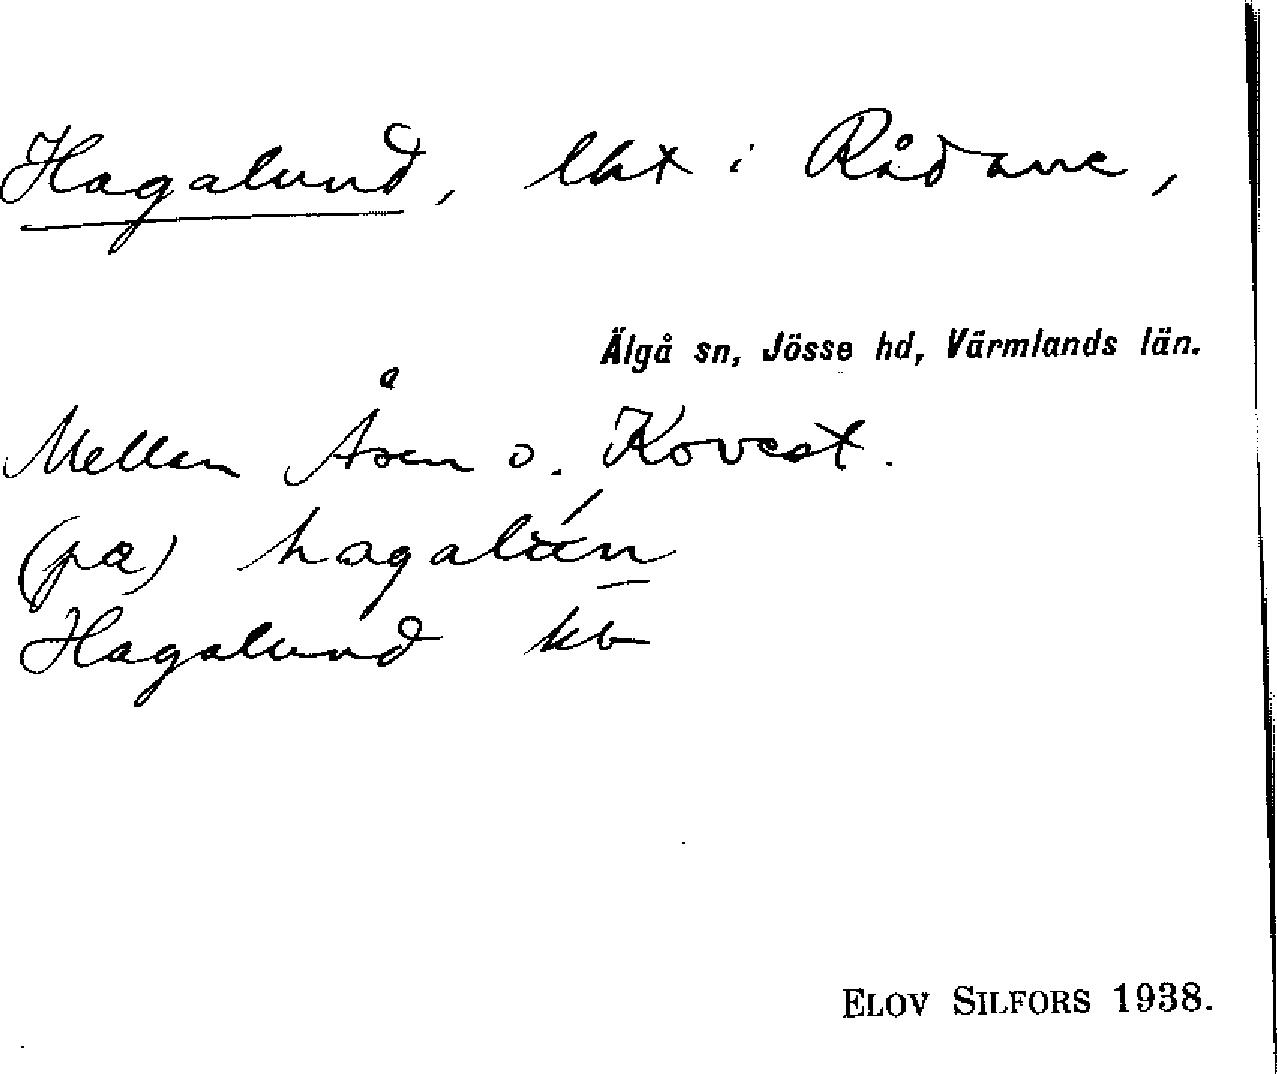 Hagalund, lht i Rådane,
Älgå sn, Jösse hd, Värmlands län.
Mellan Åsen o. Kovest.
(pa)
Hagalund kb
ELOV SILFORS 1938.